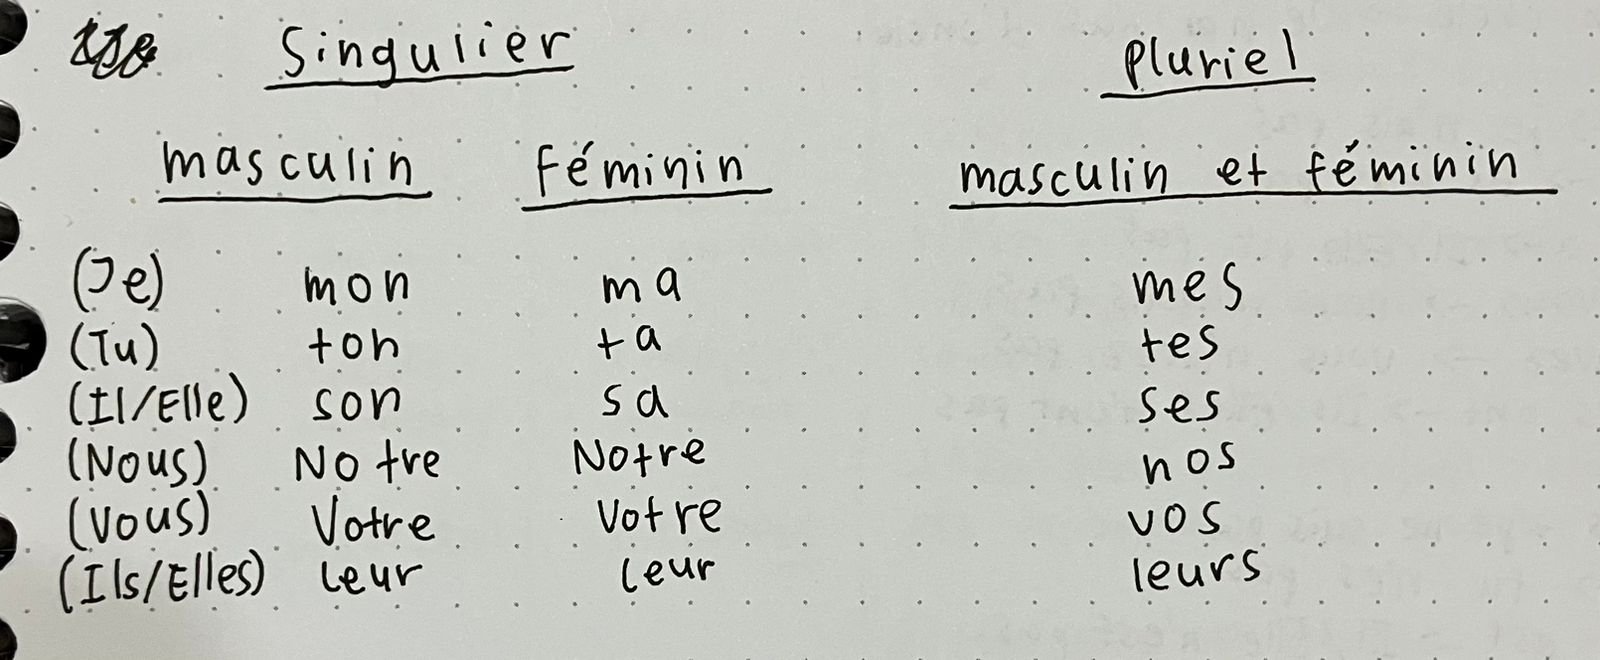 Singulier Pluriel
masculin Féminin masculin et féminin
(Je) mon ma mes
(Tu) ton ta tes
(Il/Elle) son sa ses
(Nous) Notre Notre nos
(Vous) Votre Votre vos
(Ils/Elles) leur leur leurs